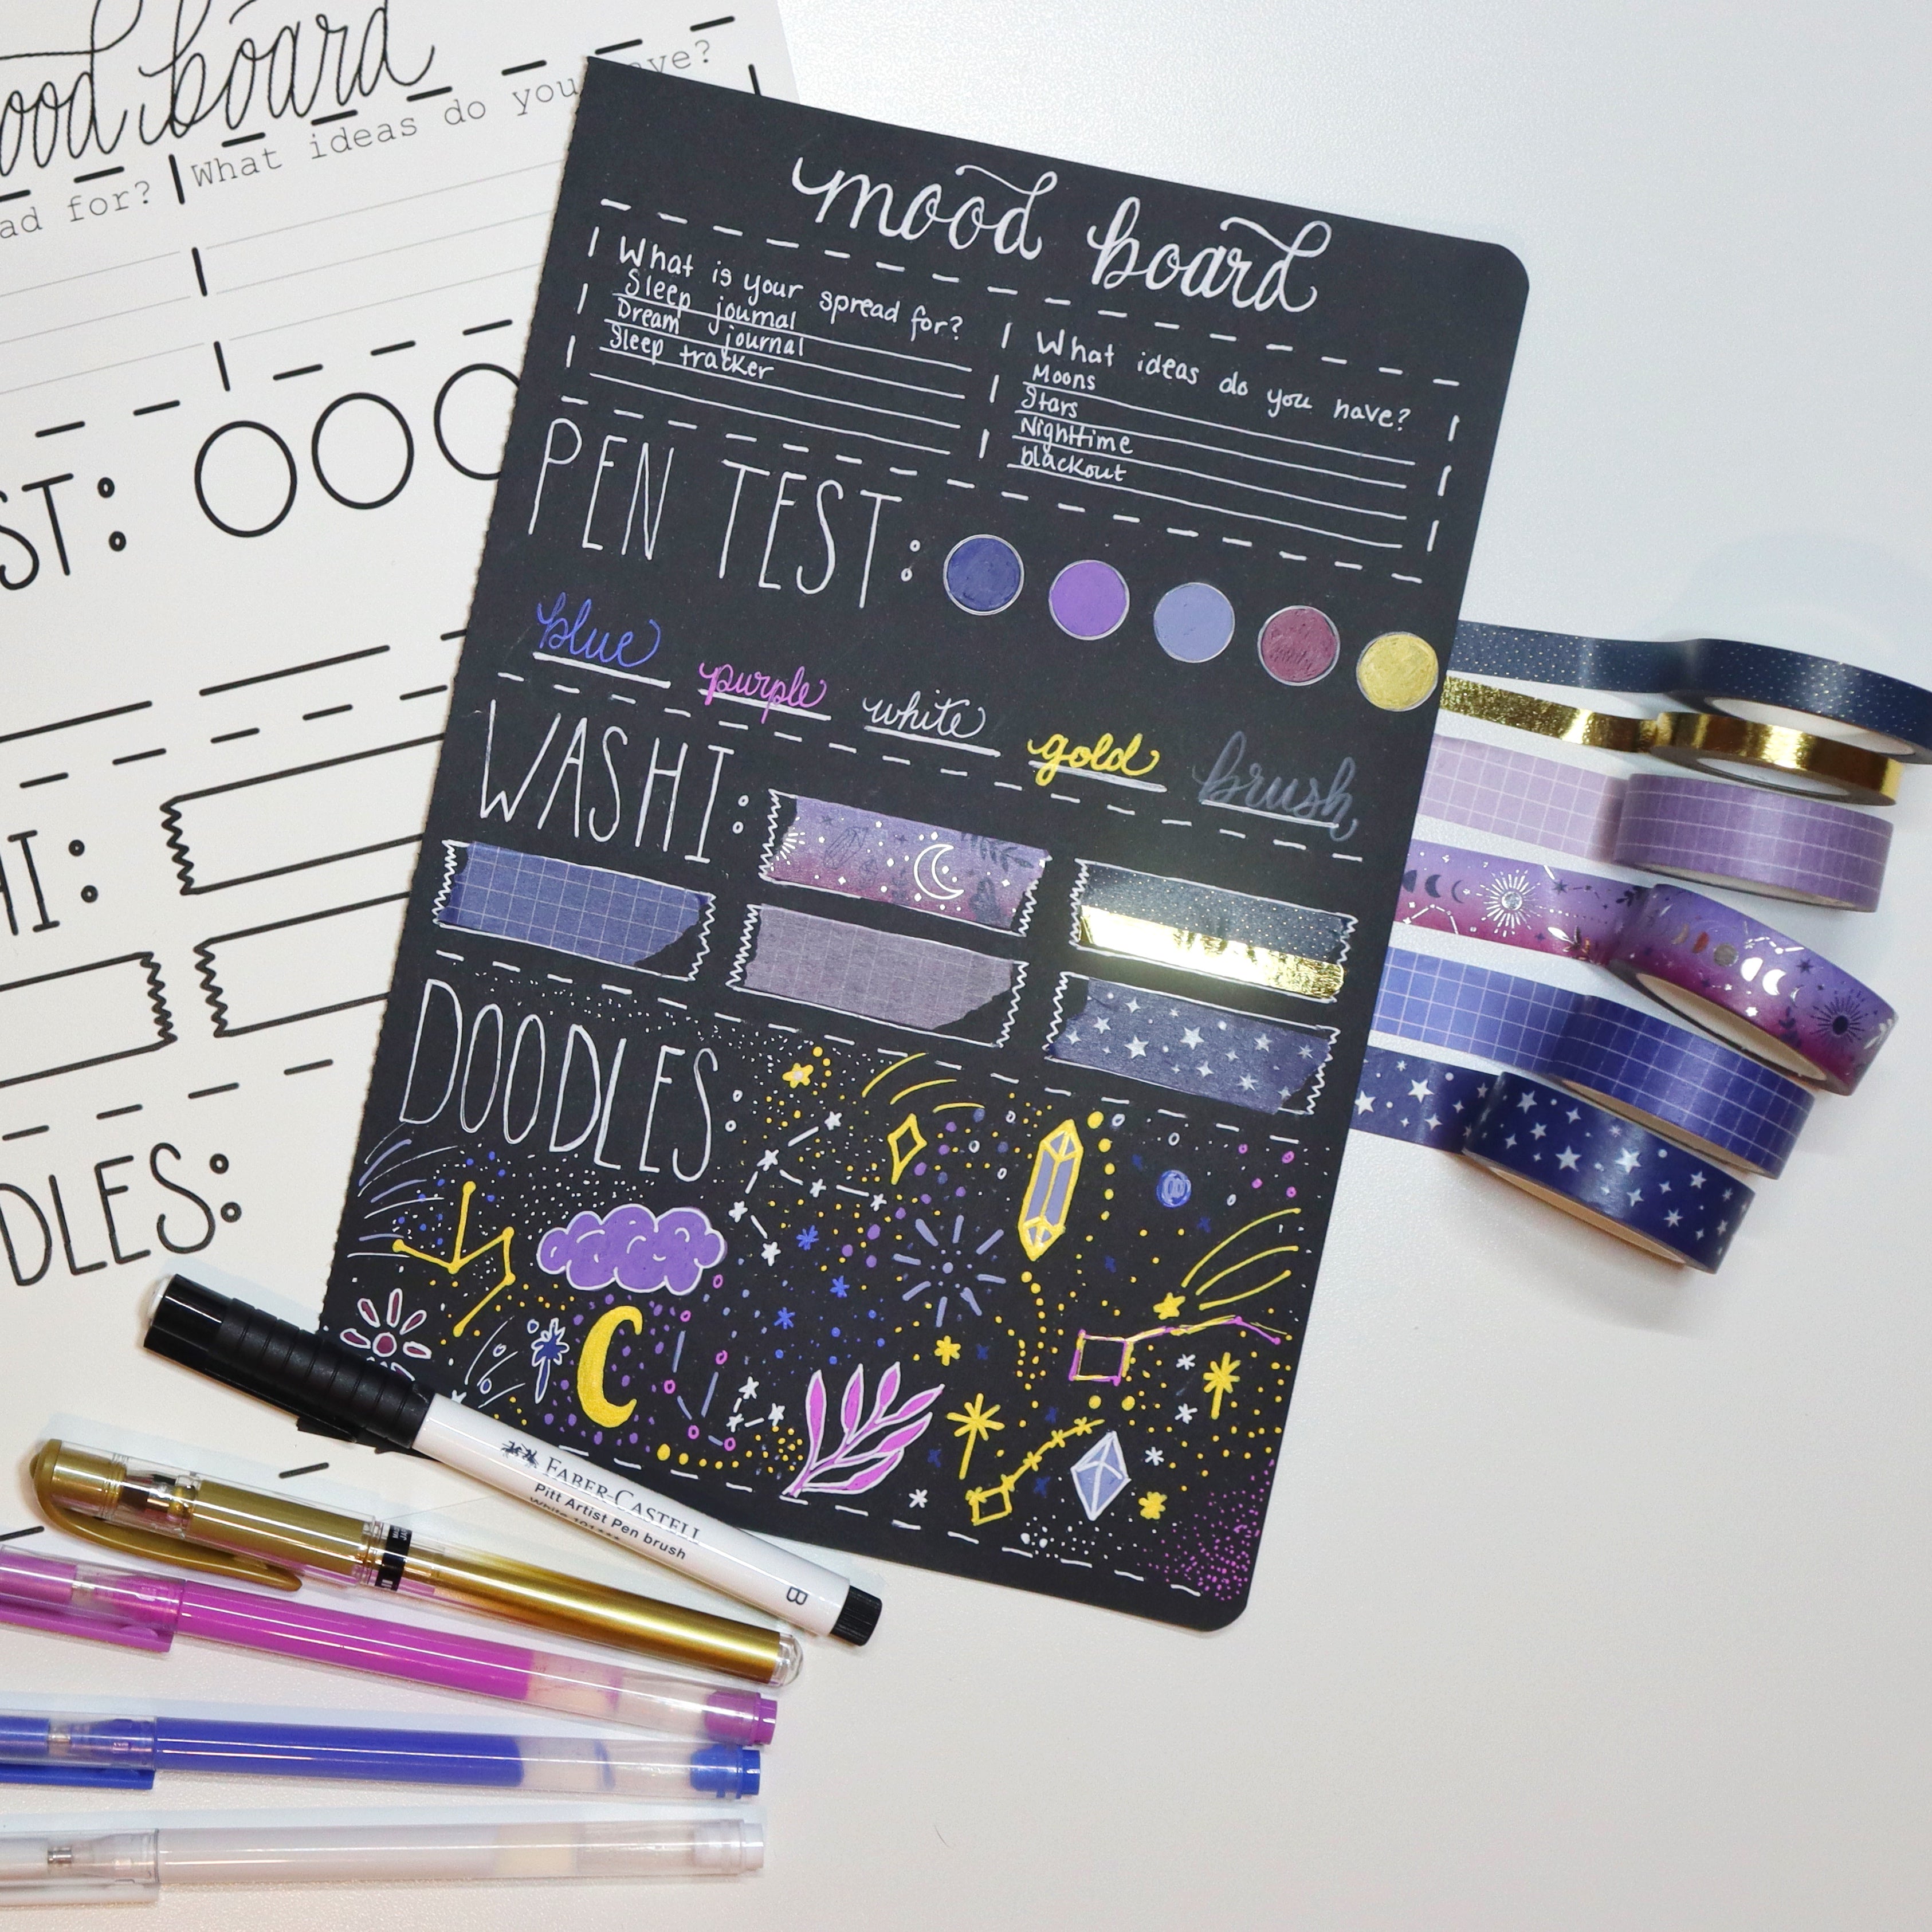 ood board
ad for?
What ideas do you
ave?
ST:
HI:
DLES:
mood board
What is your spread for?
Sleep journal
Dream journal
Sleep tracker
What ideas do you have?
Moons
Stars
Nighttime
blackout
PEN TEST:
blue
purple
white
gold
brush
WASHI:
DOODLES:
FABER-CASTELL
Pitt Artist Pen brush
B